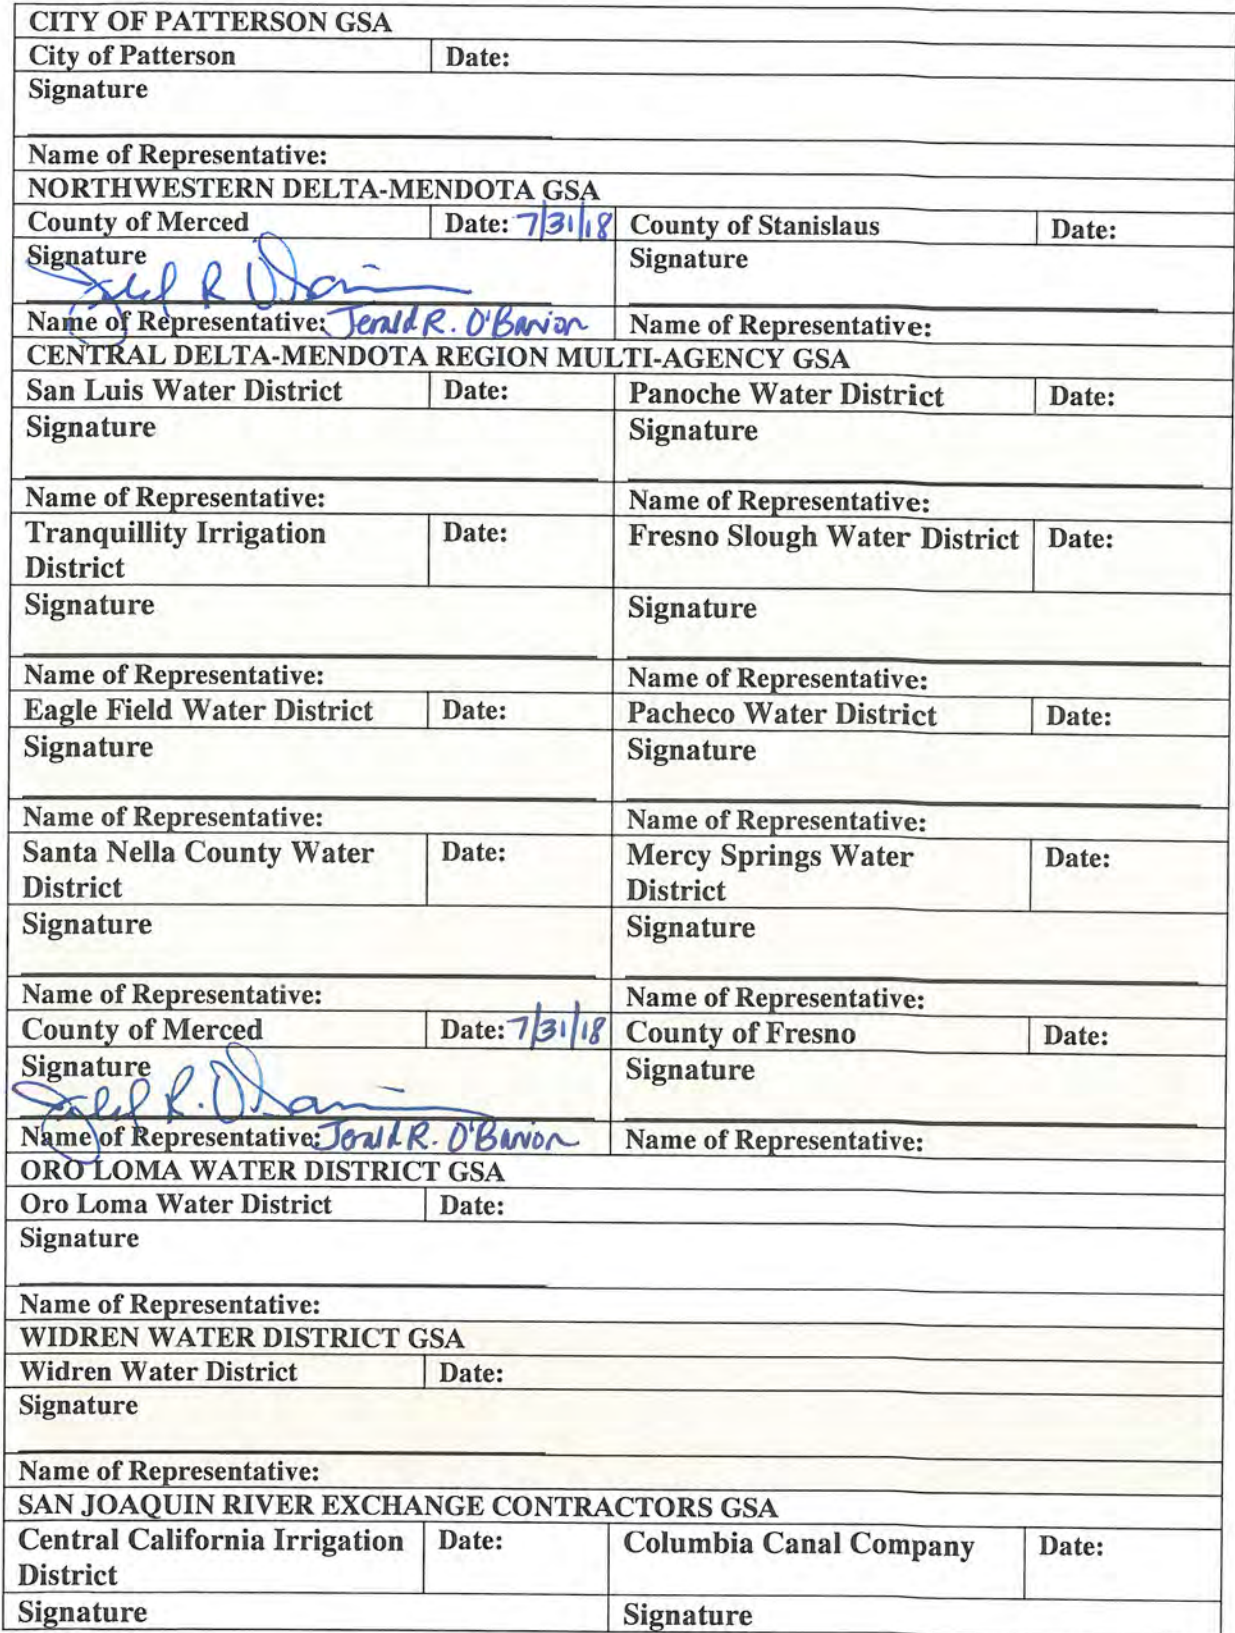 CITY OF PATTERSON GSA
City of Patterson Date:
Signature
Name of Representative:
NORTHWESTERN DELTA-MENDOTA GSA
County of Merced Date: 7/31/18 County of Stanislaus Date:
Signature Signature
Name of Representative: Jerald R. O'Banion Name of Representative:
CENTRAL DELTA-MENDOTA REGION MULTI-AGENCY GSA
San Luis Water District Date: Panoche Water District Date:
Signature Signature
Name of Representative: Name of Representative:
Tranquillity Irrigation Date: Fresno Slough Water District Date:
District
Signature Signature
Name of Representative: Name of Representative:
Eagle Field Water District Date: Pacheco Water District Date:
Signature Signature
Name of Representative: Name of Representative:
Santa Nella County Water Date: Mercy Springs Water Date:
District District
Signature Signature
Name of Representative: Name of Representative:
County of Merced Date: 7/31/18 County of Fresno Date:
Signature Signature
Name of Representative: Jerald R. O'Banion Name of Representative:
ORO LOMA WATER DISTRICT GSA
Oro Loma Water District Date:
Signature
Name of Representative:
WIDREN WATER DISTRICT GSA
Widren Water District Date:
Signature
Name of Representative:
SAN JOAQUIN RIVER EXCHANGE CONTRACTORS GSA
Central California Irrigation Date: Columbia Canal Company Date:
District
Signature Signature